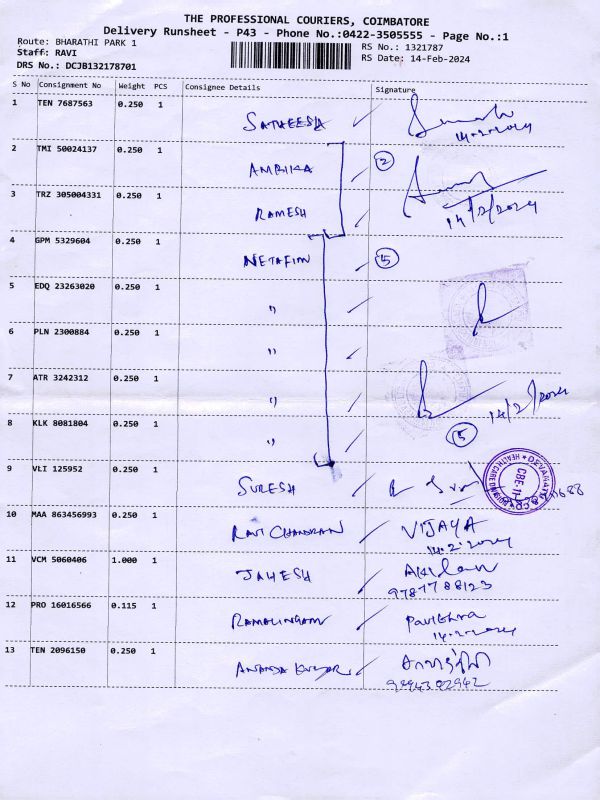 THE PROFESSIONAL COURIERS, COIMBATORE
Delivery Runsheet - P43 - Phone No.:0422-3505555 - Page No.:1
Route: BHARATHI PARK 1
Staff: RAVI
DRS No.: DCJB132178701
RS No.: 1321787
RS Date: 14-Feb-2024
S No Consignment No Weight PCS Consignee Details Signature
1 TEN 7687563 0.250 1 SATHEESH
14-2-2024
2 TMI 50024137 0.250 1 AMBIKA 2
3 TRZ 305004331 0.250 1 RAMESH 14/2/2024
4 GPM 5329604 0.250 1 NETAFIM 5
5 EDQ 23263020 0.250 1 "
6 PLN 2300884 0.250 1 "
7 ATR 3242312 0.250 1 " 14/2/2024
8 KLK 8081804 0.250 1 " 5
9 VLI 125952 0.250 1 SURESH
10 MAA 863456993 0.250 1 RAVI CHANDRAN VIJAYA
14.2.2024
11 VCM 5060406 1.000 1 JAHESH
9787788123
12 PRO 16016566 0.115 1 RAMALINGAM Pavithra
14-2-2024
13 TEN 2096150 0.250 1 ANANDA KUMAR
9994302942